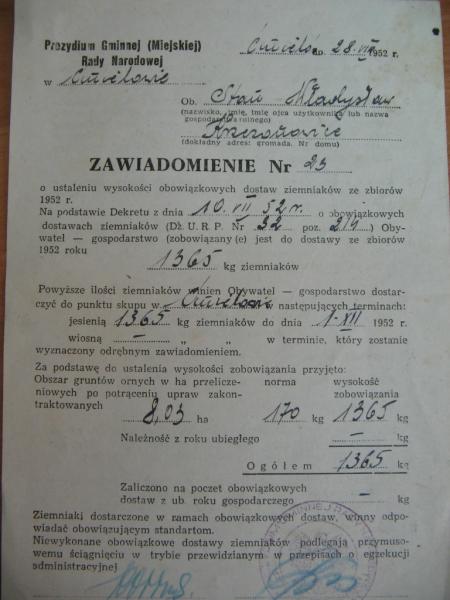 Prezydium Gminnej (Miejskiej)
Rady Narodowej
w Ćmielowie
Ćmielów dn. 28. VII 1952 r.
Ob. Stan Władysław
(nazwisko, imię, imię ojca użytkownika lub nazwa
gospodarstwa rolnego)
Krzczonowice
(dokładny adres: gromada, Nr domu)
ZAWIADOMIENIE Nr 23
o ustaleniu wysokości obowiązkowych dostaw ziemniaków ze zbiorów
1952 r.
Na podstawie Dekretu z dnia 10. VII 52 r. o obowiązkowych
dostawach ziemniaków (Dz. U. R. P. Nr 32 poz. 214) Oby-
watel — gospodarstwo (zobowiązany(e) jest do dostawy ze zbiorów
1952 roku
1365 kg ziemniaków
Powyższe ilości ziemniaków winien Obywatel — gospodarstwo dostar-
czyć do punktu skupu w Ćmielowie w następujących terminach:
jesienią 1365 kg ziemniaków do dnia 1-XII 1952 r.
wiosną — „ „ w terminie, który zostanie
wyznaczony odrębnym zawiadomieniem.
Za podstawę do ustalenia wysokości zobowiązania przyjęto:
Obszar gruntów ornych w ha przelicze- norma wysokość
niowych po potrąceniu upraw zakon- zobowiązania
traktowanych
8,03 ha 170 kg 1365 kg
Należność z roku ubiegłego — kg
Ogółem 1365 kg
Zaliczono na poczet obowiązkowych
dostaw z ub. roku gospodarczego — kg
Ziemniaki dostarczone w ramach obowiązkowych dostaw, winny odpo-
wiadać obowiązującym standartom.
Niewykonane obowiązkowe dostawy ziemniaków podlegają przymuso-
wemu ściągnięciu w trybie przewidzianym w przepisach o egzekucji
administracyjnej